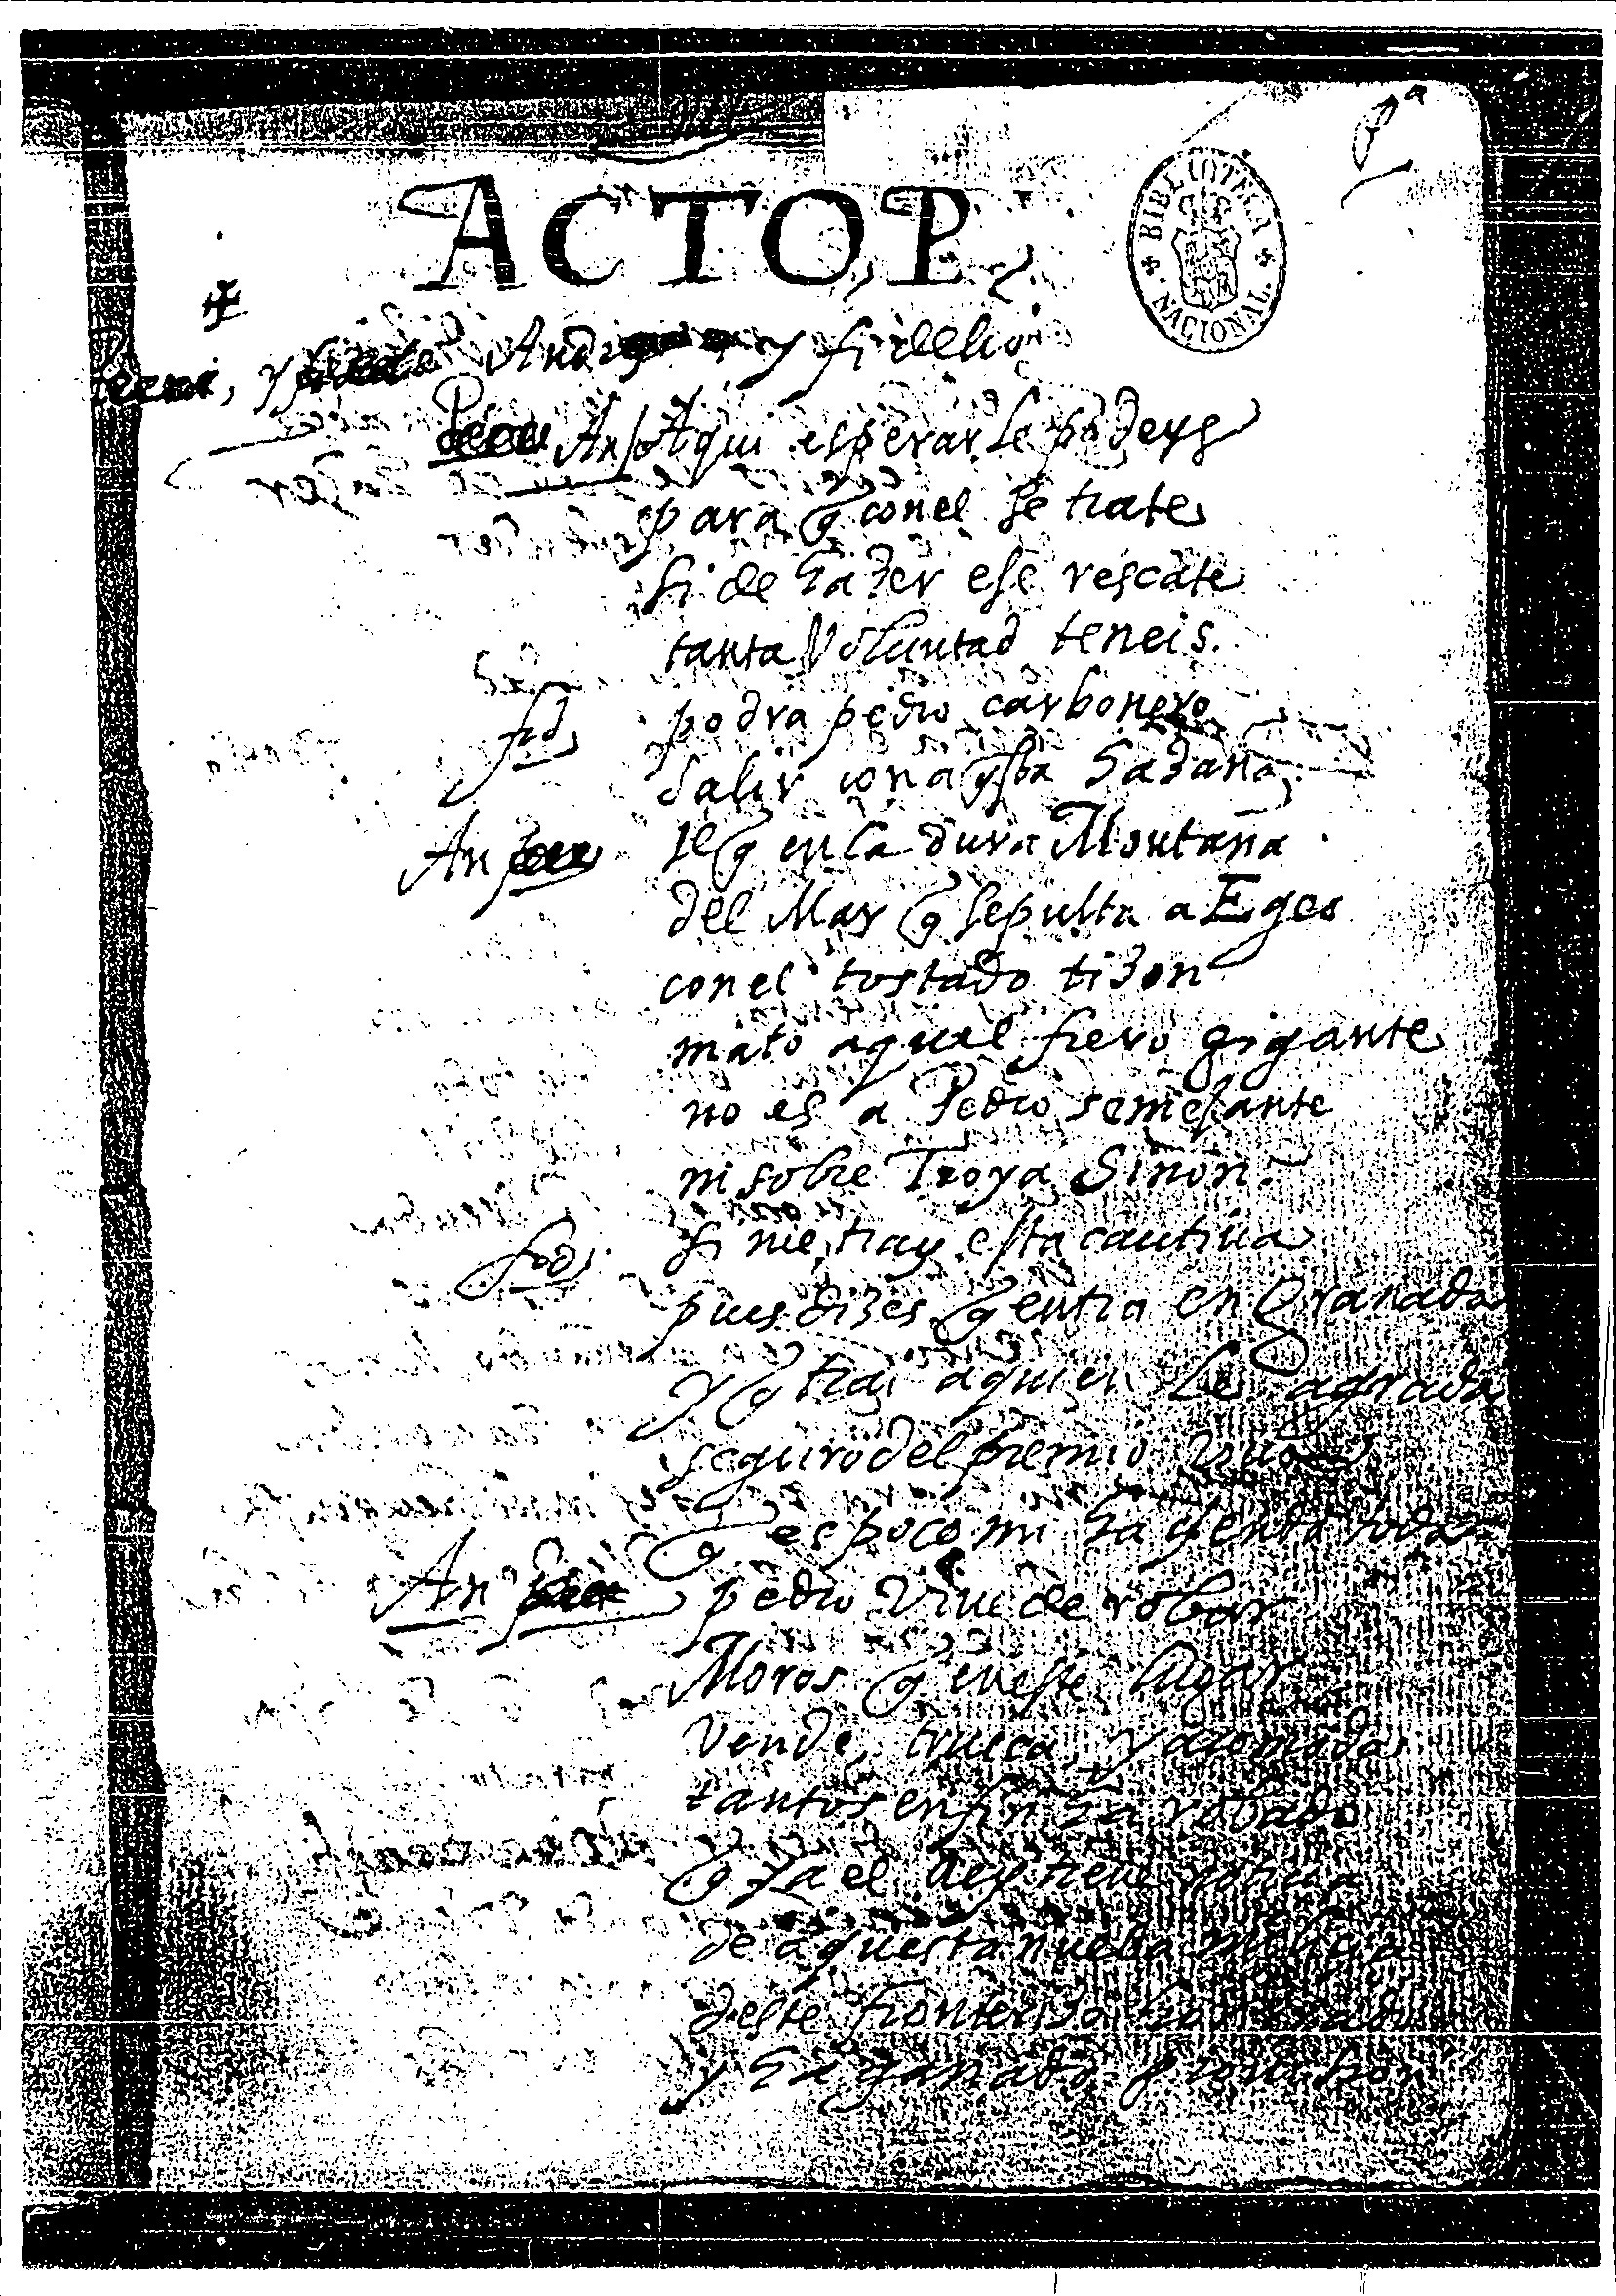 pa
ACTO P
BIBLIOTECA NACIONAL
y fidelio
Aqui esperar le podeys
para q con el se trate
si de hazer ese rescate
tanta Voluntad teneis.
fid podra pedro carbonero
salir con aqsta hazaña
An el q en la dura Montaña
del Mar q sepulta a Egeo
con el tostado tizon
mato aquel fiero gigante
no es a Pedro semejante
ni sobre Troya Sinon.
fid si me tray esta cautiua
pues dizes q entra en Granada
y q trai a quien le agrada
seguro del premio viua
q es poco mi hazienda toda
An pedro Viue de robar
Moros q en este lugar
Vende, trueca, y acomoda
tantos en fin ha robado
q ya el Rey tiene noticia
de aquesta nueba milicia
deste fronterizo
y ha ganado